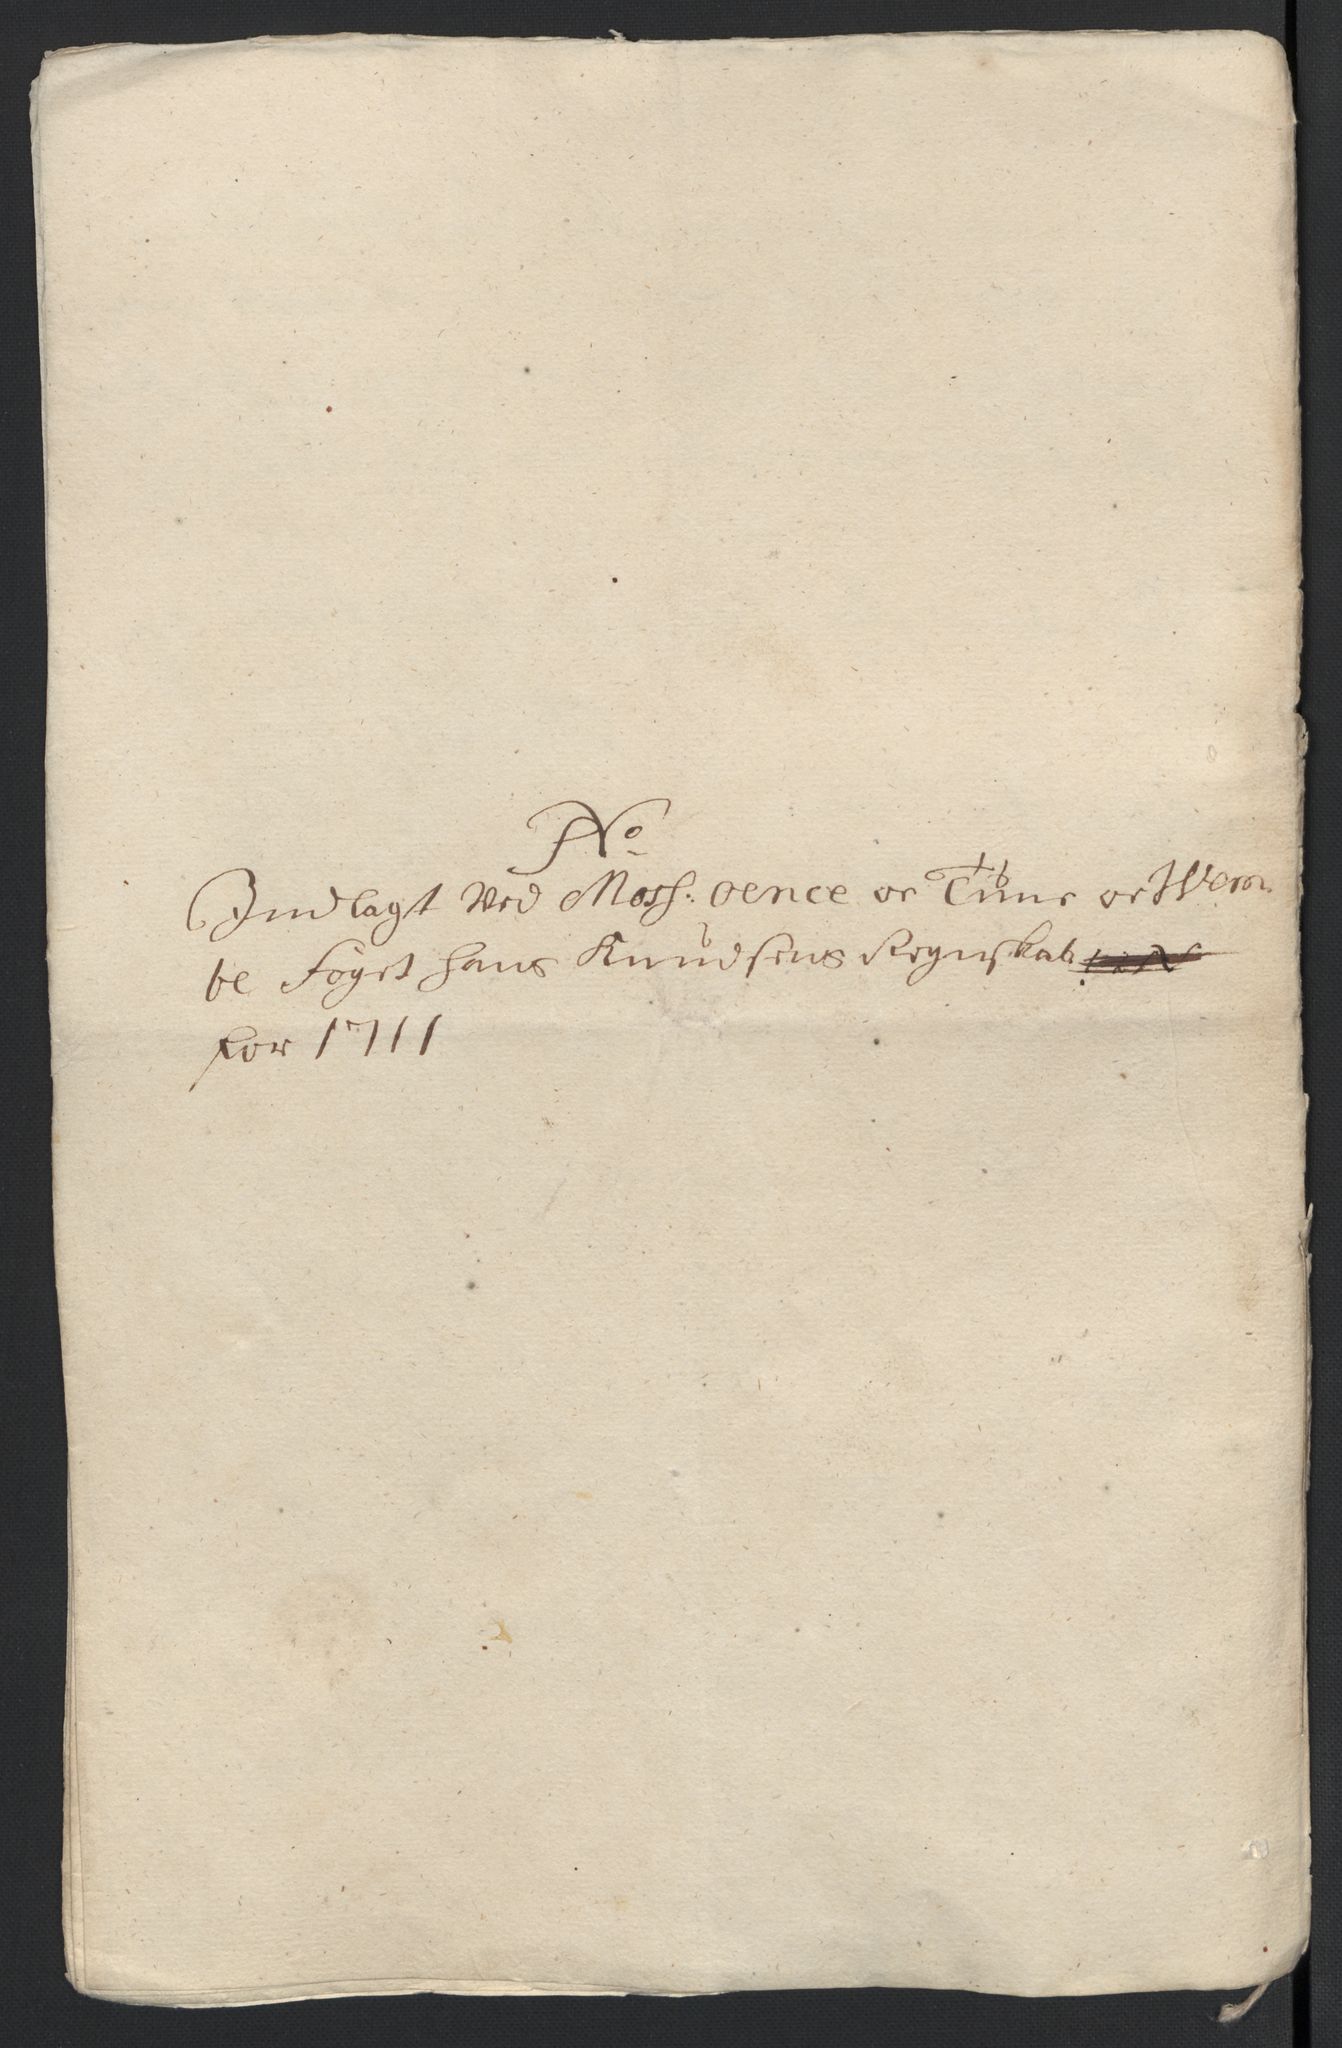 No
Indlagt Ved Moss: Oence oc Tune oc Wem
be Foget Hans Knudsens Regnskab
for 1711